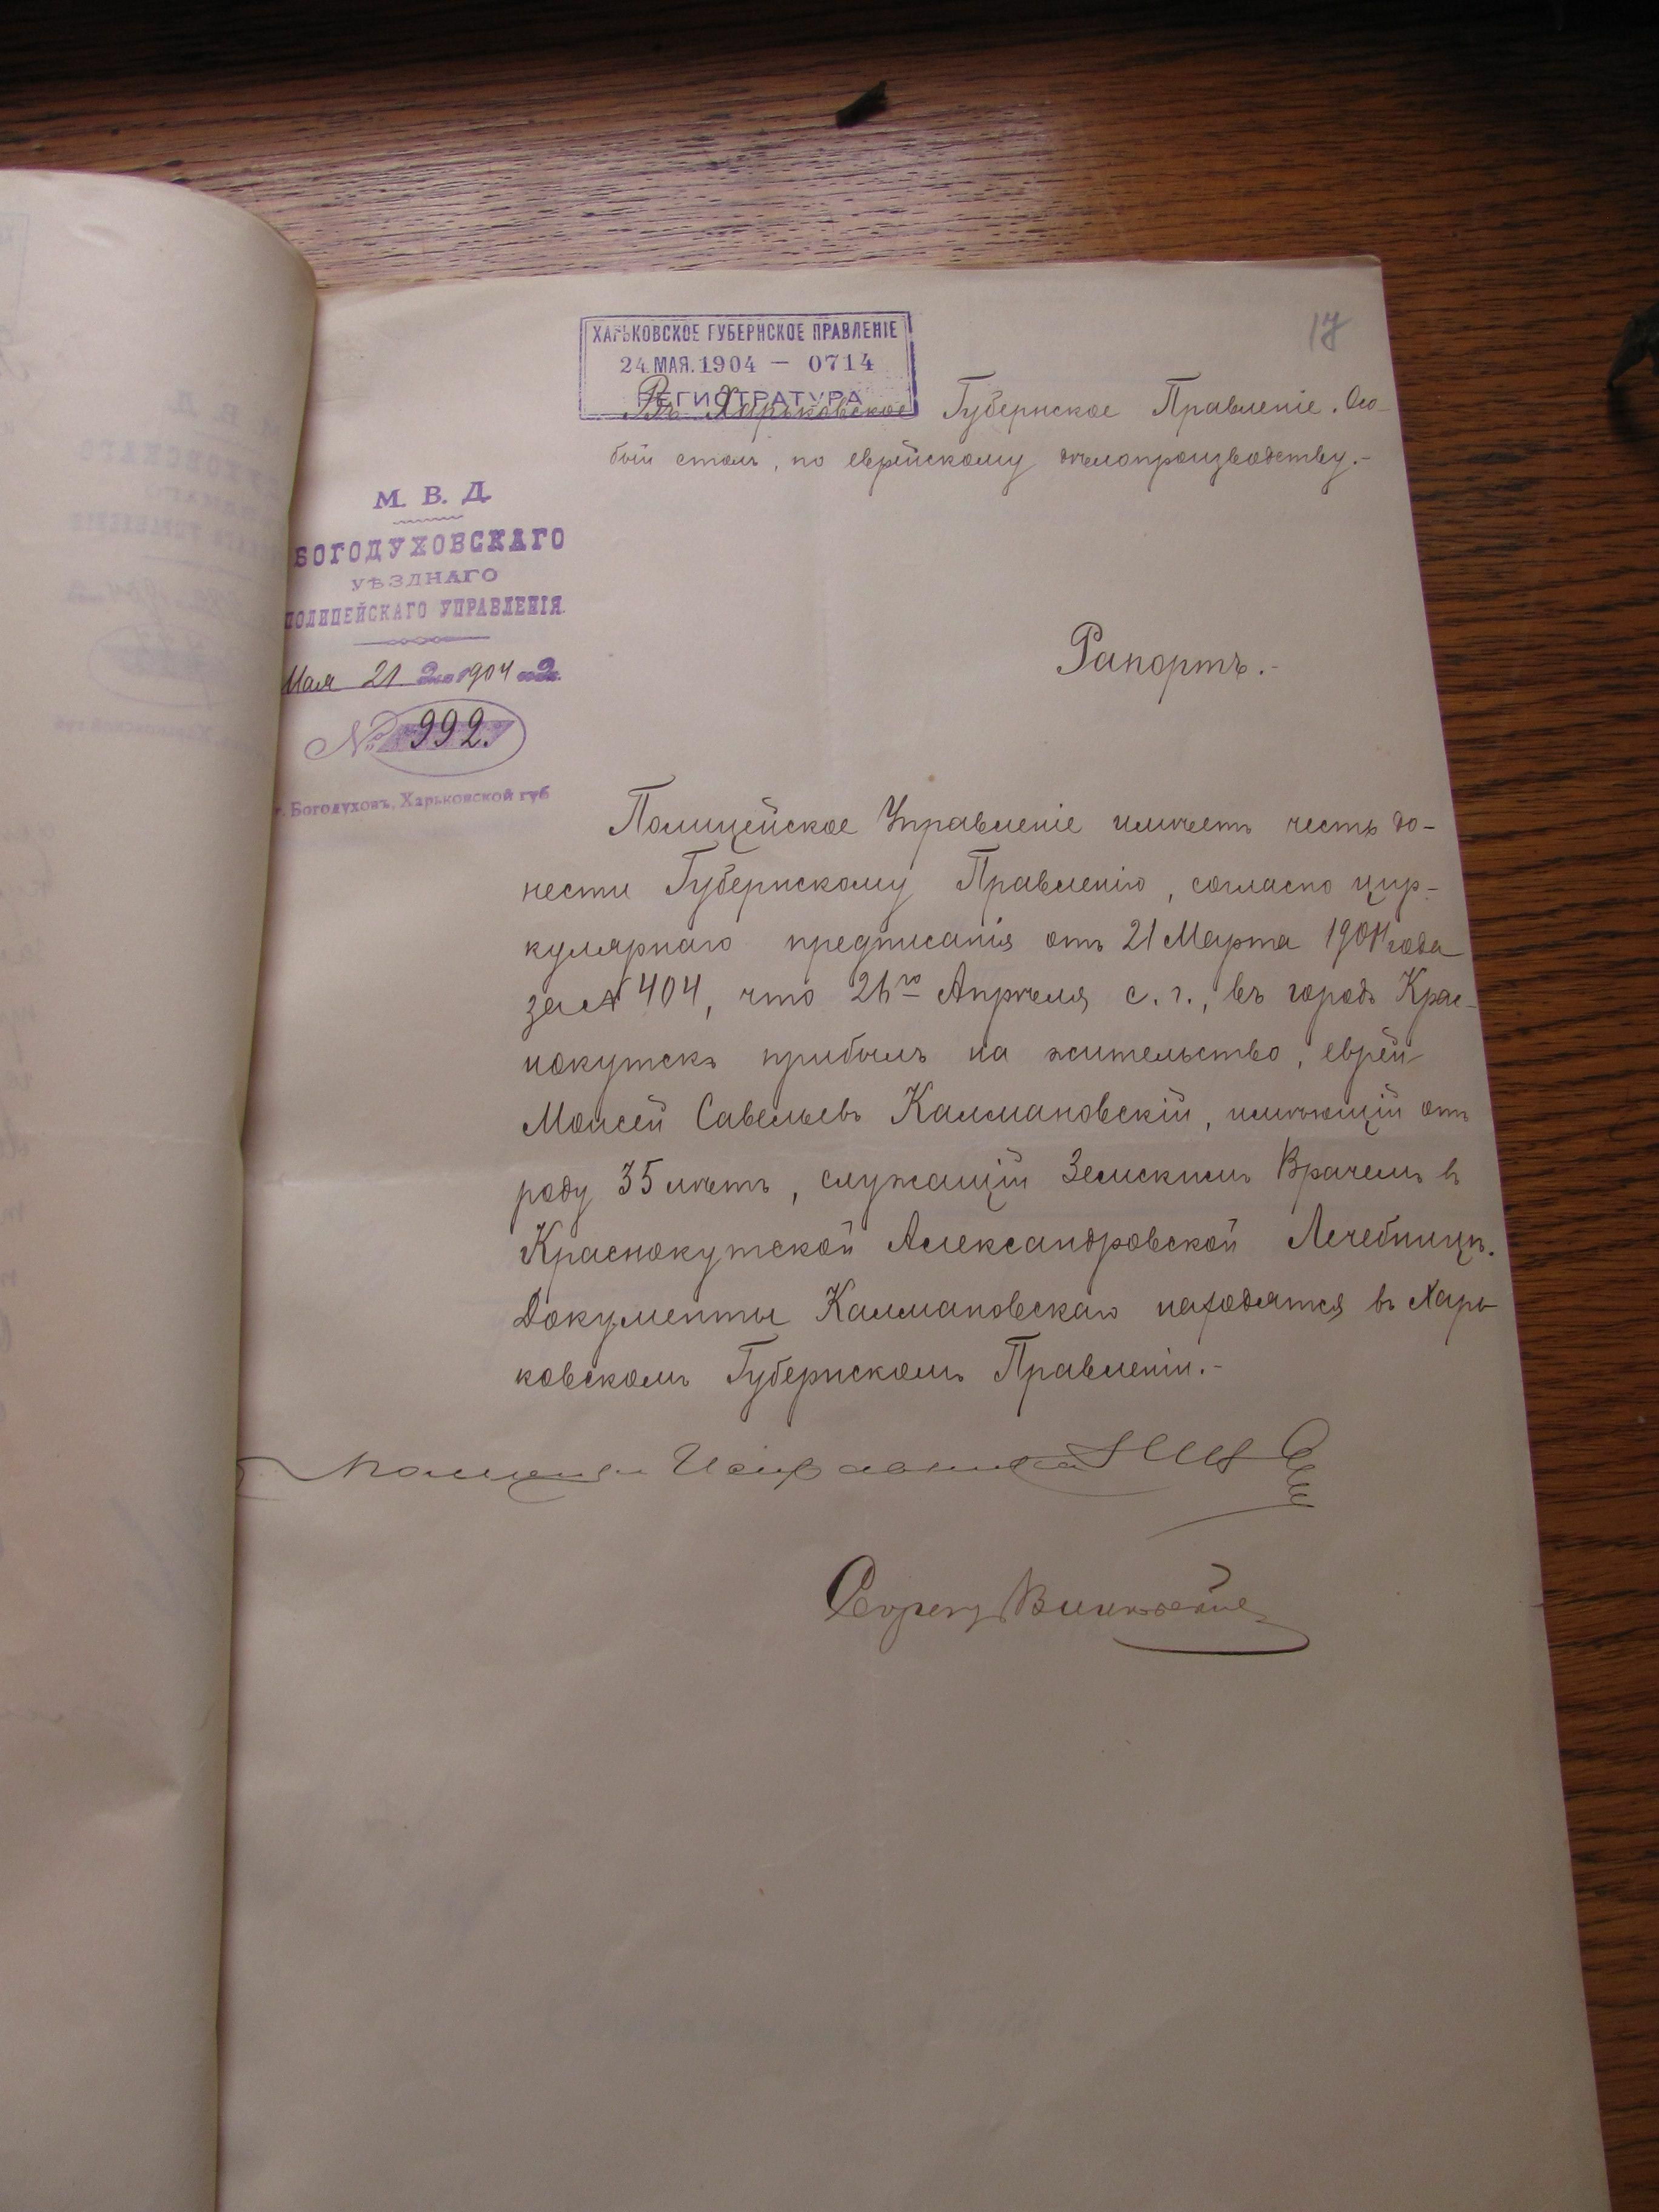 17
ХАРЬКОВСКОЕ ГУБЕРНСКОЕ ПРАВЛЕНІЕ
24.МАЯ.1904 — 0714
РЕГИСТРАТУРА
Въ Харьковское Губернское Правленіе. Осо-
бый столъ, по еврейскому дѣлопроизводству.-
М. В. Д.
БОГОДУХОВСКАГО
УѢЗДНАГО
ПОЛИЦЕЙСКАГО УПРАВЛЕНІЯ.
Мая 21 дня 1904 года.
№ 992.
г. Богодуховъ, Харьковской губ
Рапортъ.-
Полицейское Управленіе имѣетъ честь до-
нести Губернскому Правленію, согласно цир-
кулярнаго предписанія отъ 21 Марта 1904 года
за № 404, что 26го Апрѣля с. г., въ городъ Крас-
нокутскъ прибылъ на жительство, еврей
Моисей Савельевъ Калмановскій, имѣющій отъ
роду 35 лѣтъ, служащій Земскимъ Врачемъ в
Краснокутской Александровской Лечебницѣ.
Документы Калмановскаго находятся въ Харь-
ковскомъ Губернскомъ Правленіи.-
Исправника
Секрет